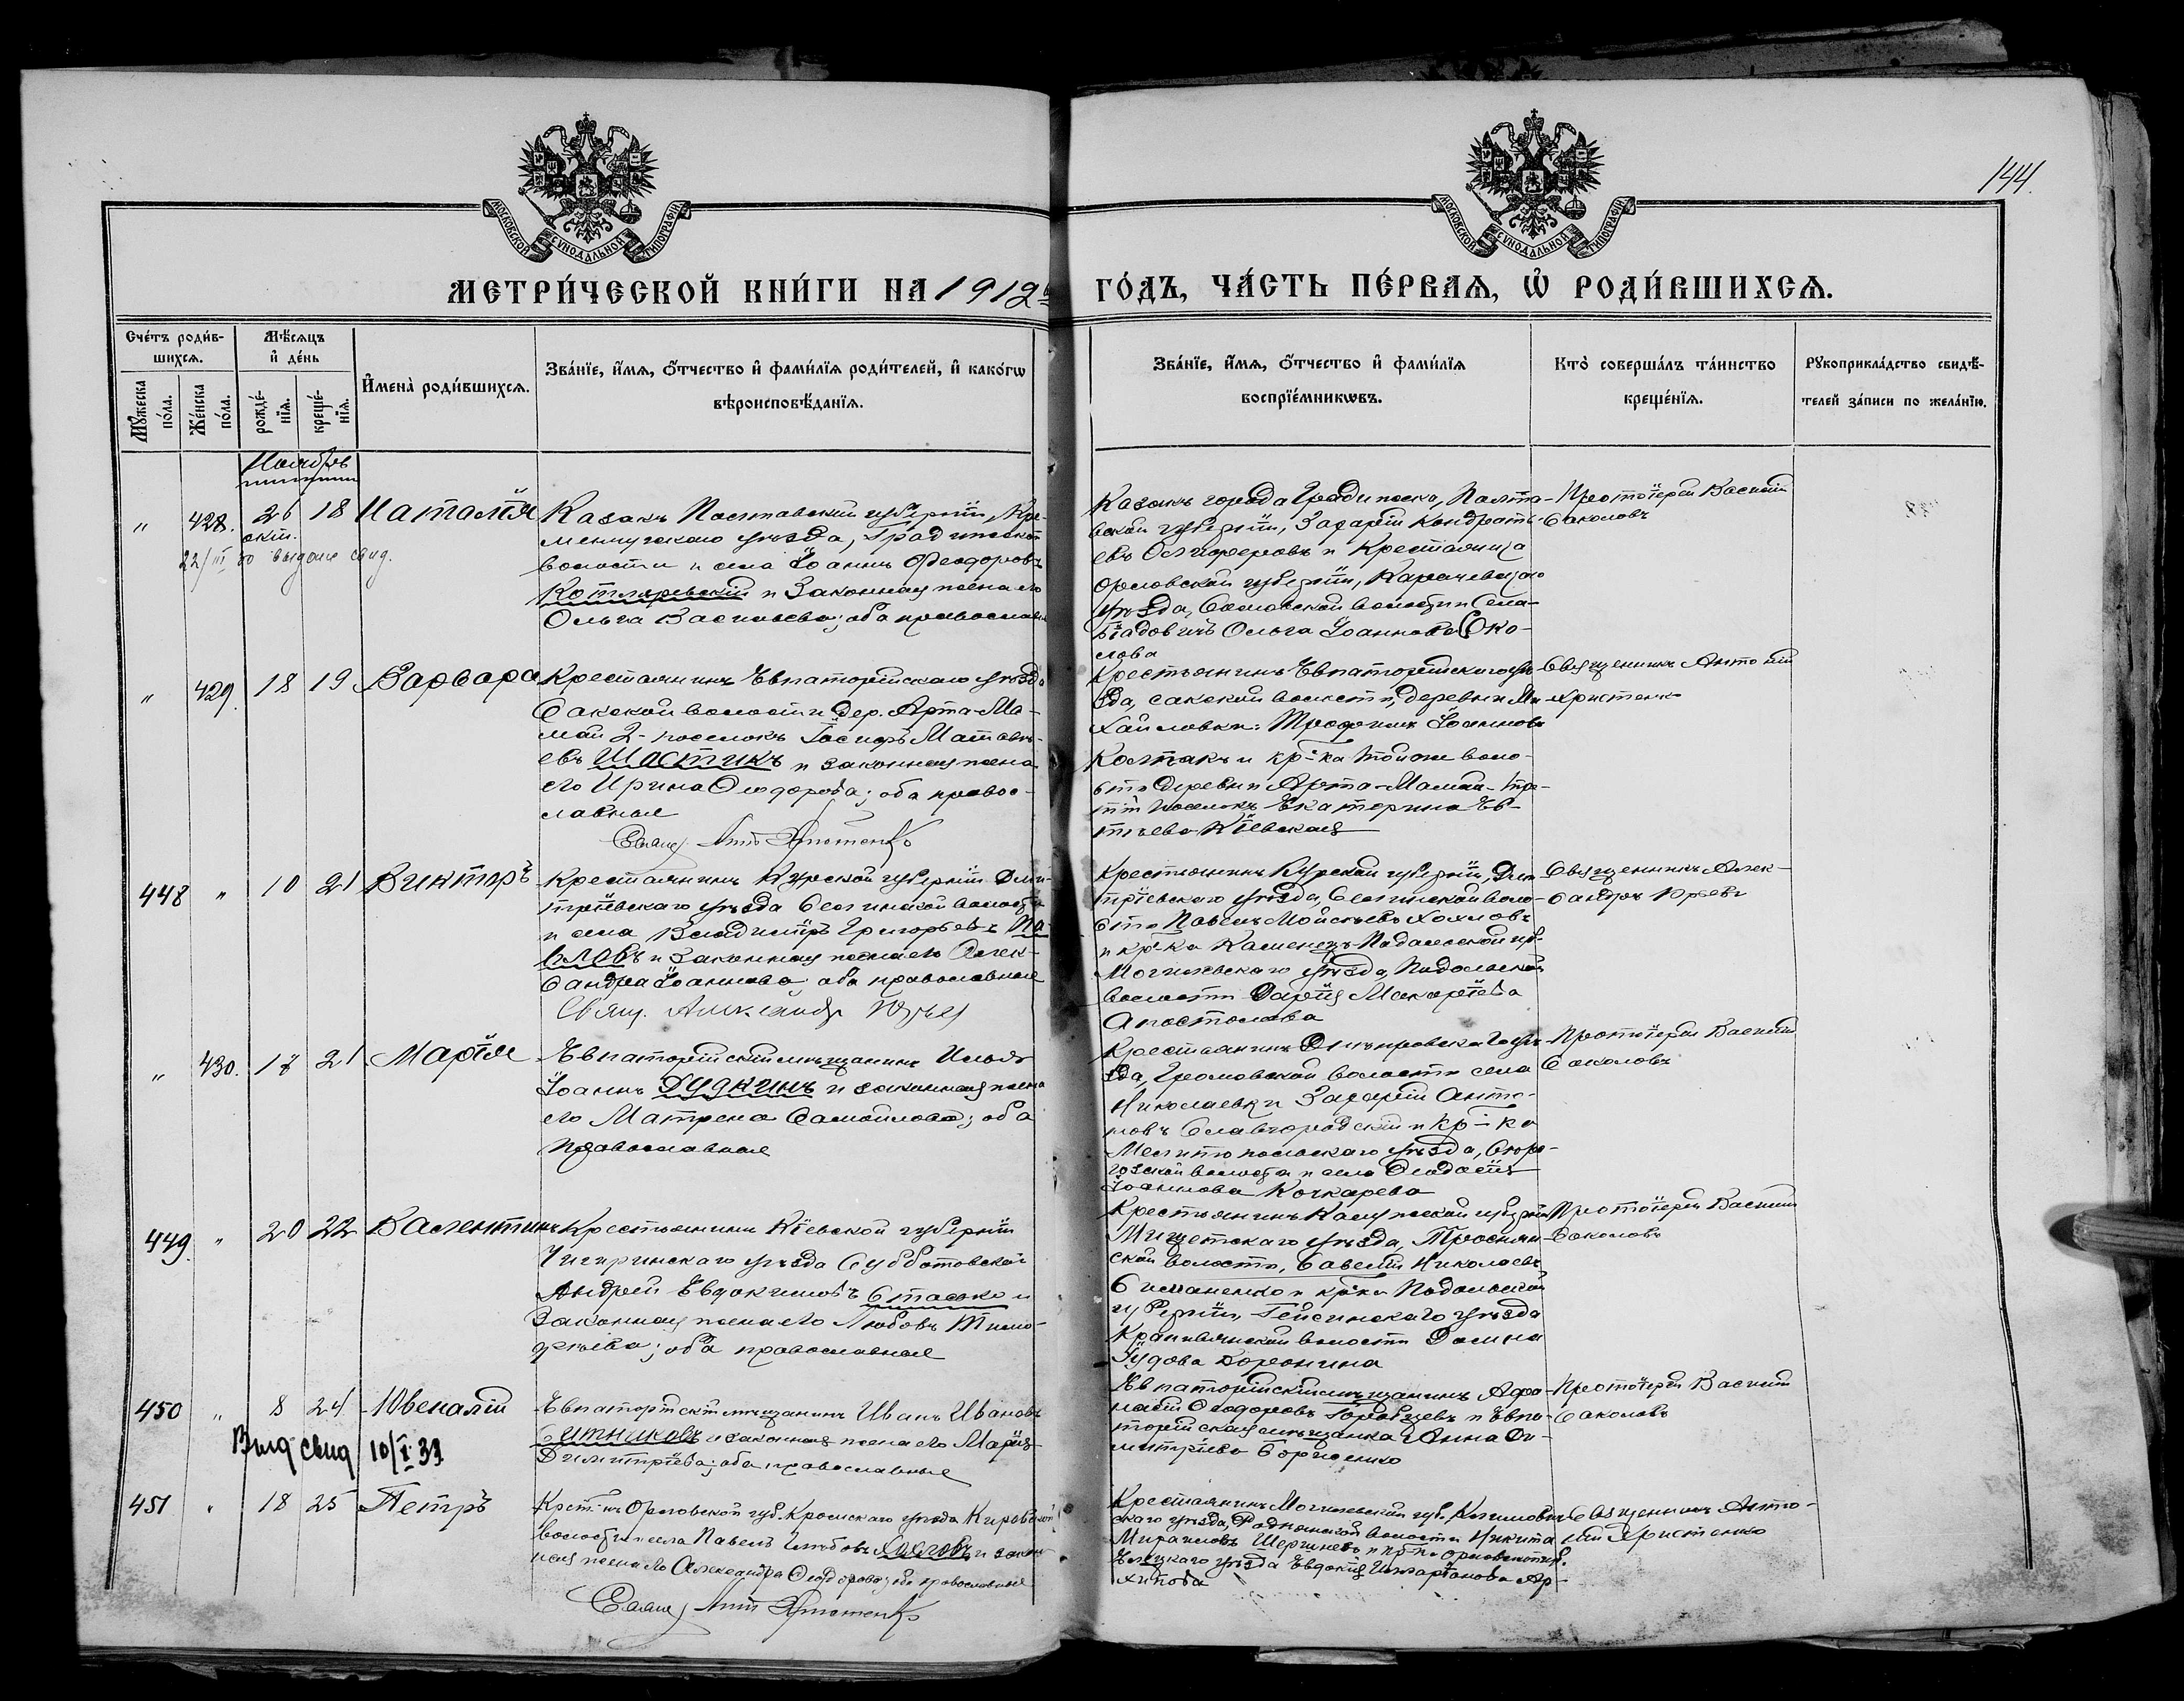 144.
МОСКОВСКОЙ СѴНОДАЛЬНОЙ ТИПОГРАФІИ
МОСКОВСКОЙ СѴНОДАЛЬНОЙ ТИПОГРАФІИ
МЕТРИ́ЧЕСКОЙ КНИ́ГИ НА 1912 ГО́ДЪ, ЧА́СТЬ ПЕ́РВАЯ, Ѡ҆ РОДИ́ВШИХСЯ.
Сче́тъ роди́в-
шихся.
Мꙋ́жеска по́ла.
Же́нска по́ла.
Мѣ́сяцъ
и҆ де́нь
рожде́нїя.
креще́нїя.
И҆мена̀ роди́вшихся.
Зва́нїе, и҆́мя, ѻ҆́тчество и҆ фами́лїя роди́телей, и҆ како́гѡ
вѣроисповѣ́данїя.
Зва́нїе, и҆́мя, ѻ҆́тчество и҆ фами́лїя
воспрїе́мникѡвъ.
Кто̀ соверша́лъ та́инство
креще́нїя.
Рꙋкоприкла́дство свидѣ́-
телей за́писи по жела́нїю.
Ноябрь
" 428. 26 окт. 18 Наталія
22/III выдано свид.
Казакъ Полтавской губерніи, Кре-
менчугскаго уѣзда, Градижской
волости и села Іоаннъ Ѳеодоровъ
Котляревскій и законная жена его
Ольга Васильева; оба православн
Казакъ города Градижска, Полта-
вской губерніи, Захарій Кондрать-
евъ и Крестьянка
Орловской губерніи, Карачевскаго
уѣзда, волости и села
Ольга Іоаннова Соко-
лова
Протоіерей Василій
Соколовъ
" 429. 18 19 Варвара
Крестьянинъ Евпаторійскаго уѣзда
Сакской волости дер. Арта-Ма-
май 2- поселокъ Іосифъ Матвѣ-
евъ Шостикъ и законная жена
его Ирина Ѳеодорова; оба правос-
лавные
Крестьянинъ Евпаторійскаго уѣ-
зда, Сакской волости, деревни Ми-
хайловки: Трофимъ Іоанновъ
Колпакъ и кр-ка той же воло-
сти деревни Арта-Мамай- тре-
тій поселокъ Екатерина Ев-
тѣева Кіевская
Священникъ Антоній
Христенко
448 " 10 21 Викторъ
Крестьянинъ Курской губерніи Дми-
тріевскаго уѣзда волости
и села Владиміръ Григорьевъ Па-
вловъ и законная жена его Алек-
сандра Іоаннова; оба православные
Свящ. Александръ Юрьевъ
Крестьянинъ Курской губерніи, Дми-
тріевскаго уѣзда, воло-
сти Павелъ Мойсѣевъ Хохловъ
и кр-ка Каменецъ-Подольской губ.
Могилевскаго уѣзда, Подольской
волости Дарія Макаріева
Апостолова
Священникъ Алек-
сандръ Юрьевъ
" 430. 17 21 Марія
Евпаторійскій мѣщанинъ Илья
Іоаннъ Дудкинъ и законная жена
его Матрена Самойлова; оба
православные
Крестьянинъ Днѣпровскаго уѣ-
зда, Громовской волости села
Николаевки Захарій Анто-
новъ Славгородскій и кр-ка
Мелитопольскаго уѣзда,
волости и села Ѳеодосія
Іоаннова Кочкарева
Протоіерей Василій
Соколовъ
449. " 20 22 Валентинъ
Крестьянинъ Кіевской губерніи
Чигиринскаго уѣзда Субботовской
Андрей Евдокимовъ Стасько и
законная жена его Любовь Тимо-
ѳеева; оба православные
Крестьянинъ Калужской губерніи
уѣзда,
ской волости, Савелій Николаевъ
Симаненко и кр-ка Подольской
губерніи, Гейсинскаго уѣзда
Крапивянской волости Домна
Іудова
Протоіерей Василій
Соколовъ
450 " 8 24 Ювеналій
Выд свид 10/I 33
Евпаторійскій мѣщанинъ Иванъ Ивановъ
Ситниковъ и законная жена его Марія
Димитріева; оба православные
Евпаторійскій мѣщанинъ Афа-
насій Ѳеодоровъ и Евпа-
торійская мѣщанка Анна Ди-
митріева Борисенко
Протоіерей Василій
Соколовъ
451 " 18 25 Петръ
Крст-нъ Орловской губ. Кромскаго уѣзда
волости и села Павелъ Глѣбовъ и закон-
ная жена его Александра Ѳеодорова; оба православные
Крестьянинъ Могилевской губ. Климович-
скаго уѣзда, Родненской волости Никита
и кр-ка Орловской губ.
Елецкаго уѣзда Евдокія Ар-
хипова
Священникъ Анто-
ній Христенко